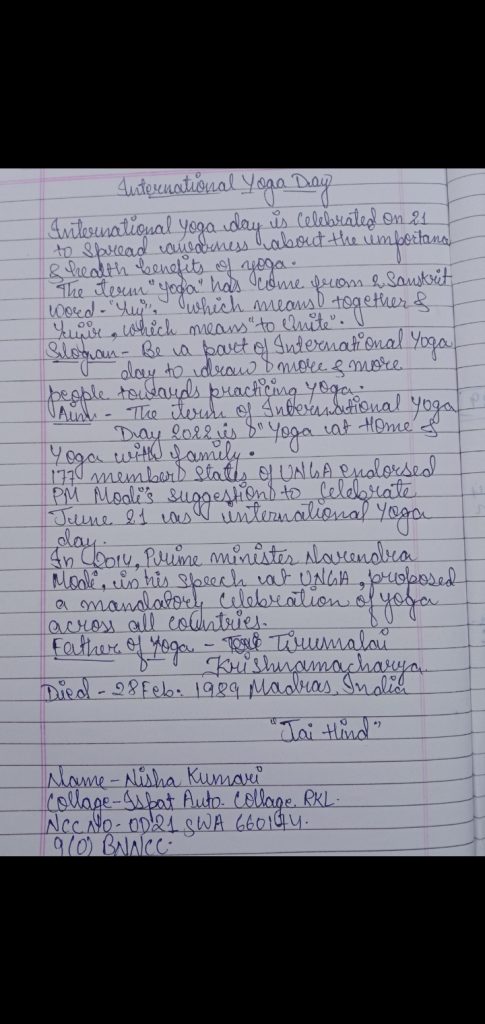 International Yoga Day
International Yoga day is Celebrated on 21
to Spread awareness about the importanc
& health benefits of yoga.
The term "Yoga" has come from 2 Sanskrit
word - "Yuj". which means together &
Yujir, which means "to Unite".
Slogan - Be a part of International Yoga
day to draw more & more
people towards practicing Yoga.
Aim - The term of International Yoga
Day 2022 is "Yoga at Home &
Yoga with family.
177 member states of UNGA endorsed
PM Modi's suggestion to Celebrate
June 21 as international Yoga
day.
In 2014, Prime minister Narendra
Modi, in his speech at UNGA, proposed
a mandatory Celebration of yoga
across all countries.
Father of Yoga - Tirumalai
Krishnamacharya
Died - 28 Feb. 1989 Madras, India
"Jai Hind"
Name - Nisha Kumari
Collage - Ispat Auto. Collage, RKL.
NCC NO - OD21 SWA
9(O) BNNCC.